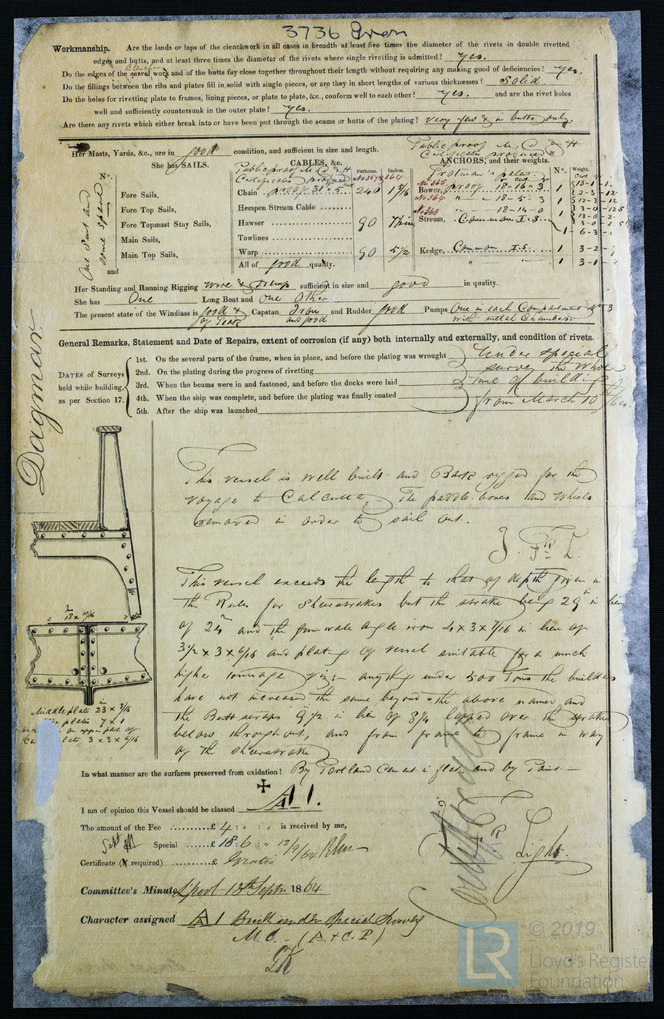 3736 Iron
Workmanship. Are the lands or laps of the clenchwork in all cases in breadth at least five times the diameter of the rivets in double rivetted
edges and butts, and at least three times the diameter of the rivets where single rivetting is admitted? yes.
Do the edges of the carvel work and of the butts fay close together throughout their length without requiring any making good of deficiencies? yes.
Do the fillings between the ribs and plates fill in solid with single pieces, or are they in short lengths of various thicknesses? Solid
Do the holes for rivetting plate to frames, lining pieces, or plate to plate, &c., conform well to each other? yes. and are the rivet holes
well and sufficiently countersunk in the outer plate? yes.
Are there any rivets which either break into or have been put through the seams or butts of the plating? very few & in butts only.
Her Masts, Yards, &c., are in good condition, and sufficient in size and length.
She has SAILS.
One Suit and some spare
Fore Sails,
Fore Top Sails,
Fore Topmast Stay Sails,
Main Sails,
Main Top Sails,
and
CABLES, &c.
Fathoms. Inches.
Public proof M.C. & H
Certificate produced
Chain 240 1 7/16
Hempen Stream Cable
Hawser 90
Towlines
Warp 90 5 1/2
All of good quality.
Public proof M.C. & H
Certificate produced
ANCHORS, and their weights.
No. Weight.
Bower, proof 18-16-3
18-5-3
18-14-0
Stream, Common
Kedge, Common 1 3-2-
1 3-1-
Her Standing and Running Rigging wire & Hemp sufficient in size and good in quality.
She has One Long Boat and one other
The present state of the Windlass is good & Capstan Iron and good and Rudder good Pumps One in each Compartment with metal Chambers
General Remarks, Statement and Date of Repairs, extent of corrosion (if any) both internally and externally, and condition of rivets.
DATES of Surveys held while building, as per Section 17.
1st. On the several parts of the frame, when in place, and before the plating was wrought
2nd. On the plating during the progress of rivetting
3rd. When the beams were in and fastened, and before the decks were laid
4th. When the ship was complete, and before the plating was finally coated
5th. After the ship was launched
Under special
survey the whole
time of building
from March 10
Dagmar
This vessel is well built and Bark rigged for the
voyage to Calcutta. The paddle-boxes and wheels
removed in order to sail out.
This vessel exceeds the length to that of depth given in
the Rules for Sheerstrakes but the strake being 29 in in lieu
of 24 and the gunwale angle iron 4 x 3 x 7/16 in lieu of
3 1/2 x 3 x 6/16 and plating of vessel suitable for a much
higher tonnage viz:- anything under 500 Tons the builders
have not increased the same beyond the above named and
the Butt straps 9 1/2 in lieu of 8 1/4 lapped over the strakes
below throughout, and from frame to frame in way
of the sheerstrake
Middle plate 23 x 7/16
plates 7 x 1
3 x 3 x 6/16
In what manner are the surfaces preserved from oxidation? By Portland Cement in flat and by Paint
I am of opinion this Vessel should be classed A 1.
The amount of the Fee £ 4 : : is received by me,
Special £ 18 : 6 : 12/9/64
Certificate (if required) £ Gratis
J. Light.
Committee's Minute L'pool 13th Septr. 1864
Character assigned A 1 Built under Special Survey
M.C. (A & C.P)
© 2019
LR
Lloyd's Register
Foundation